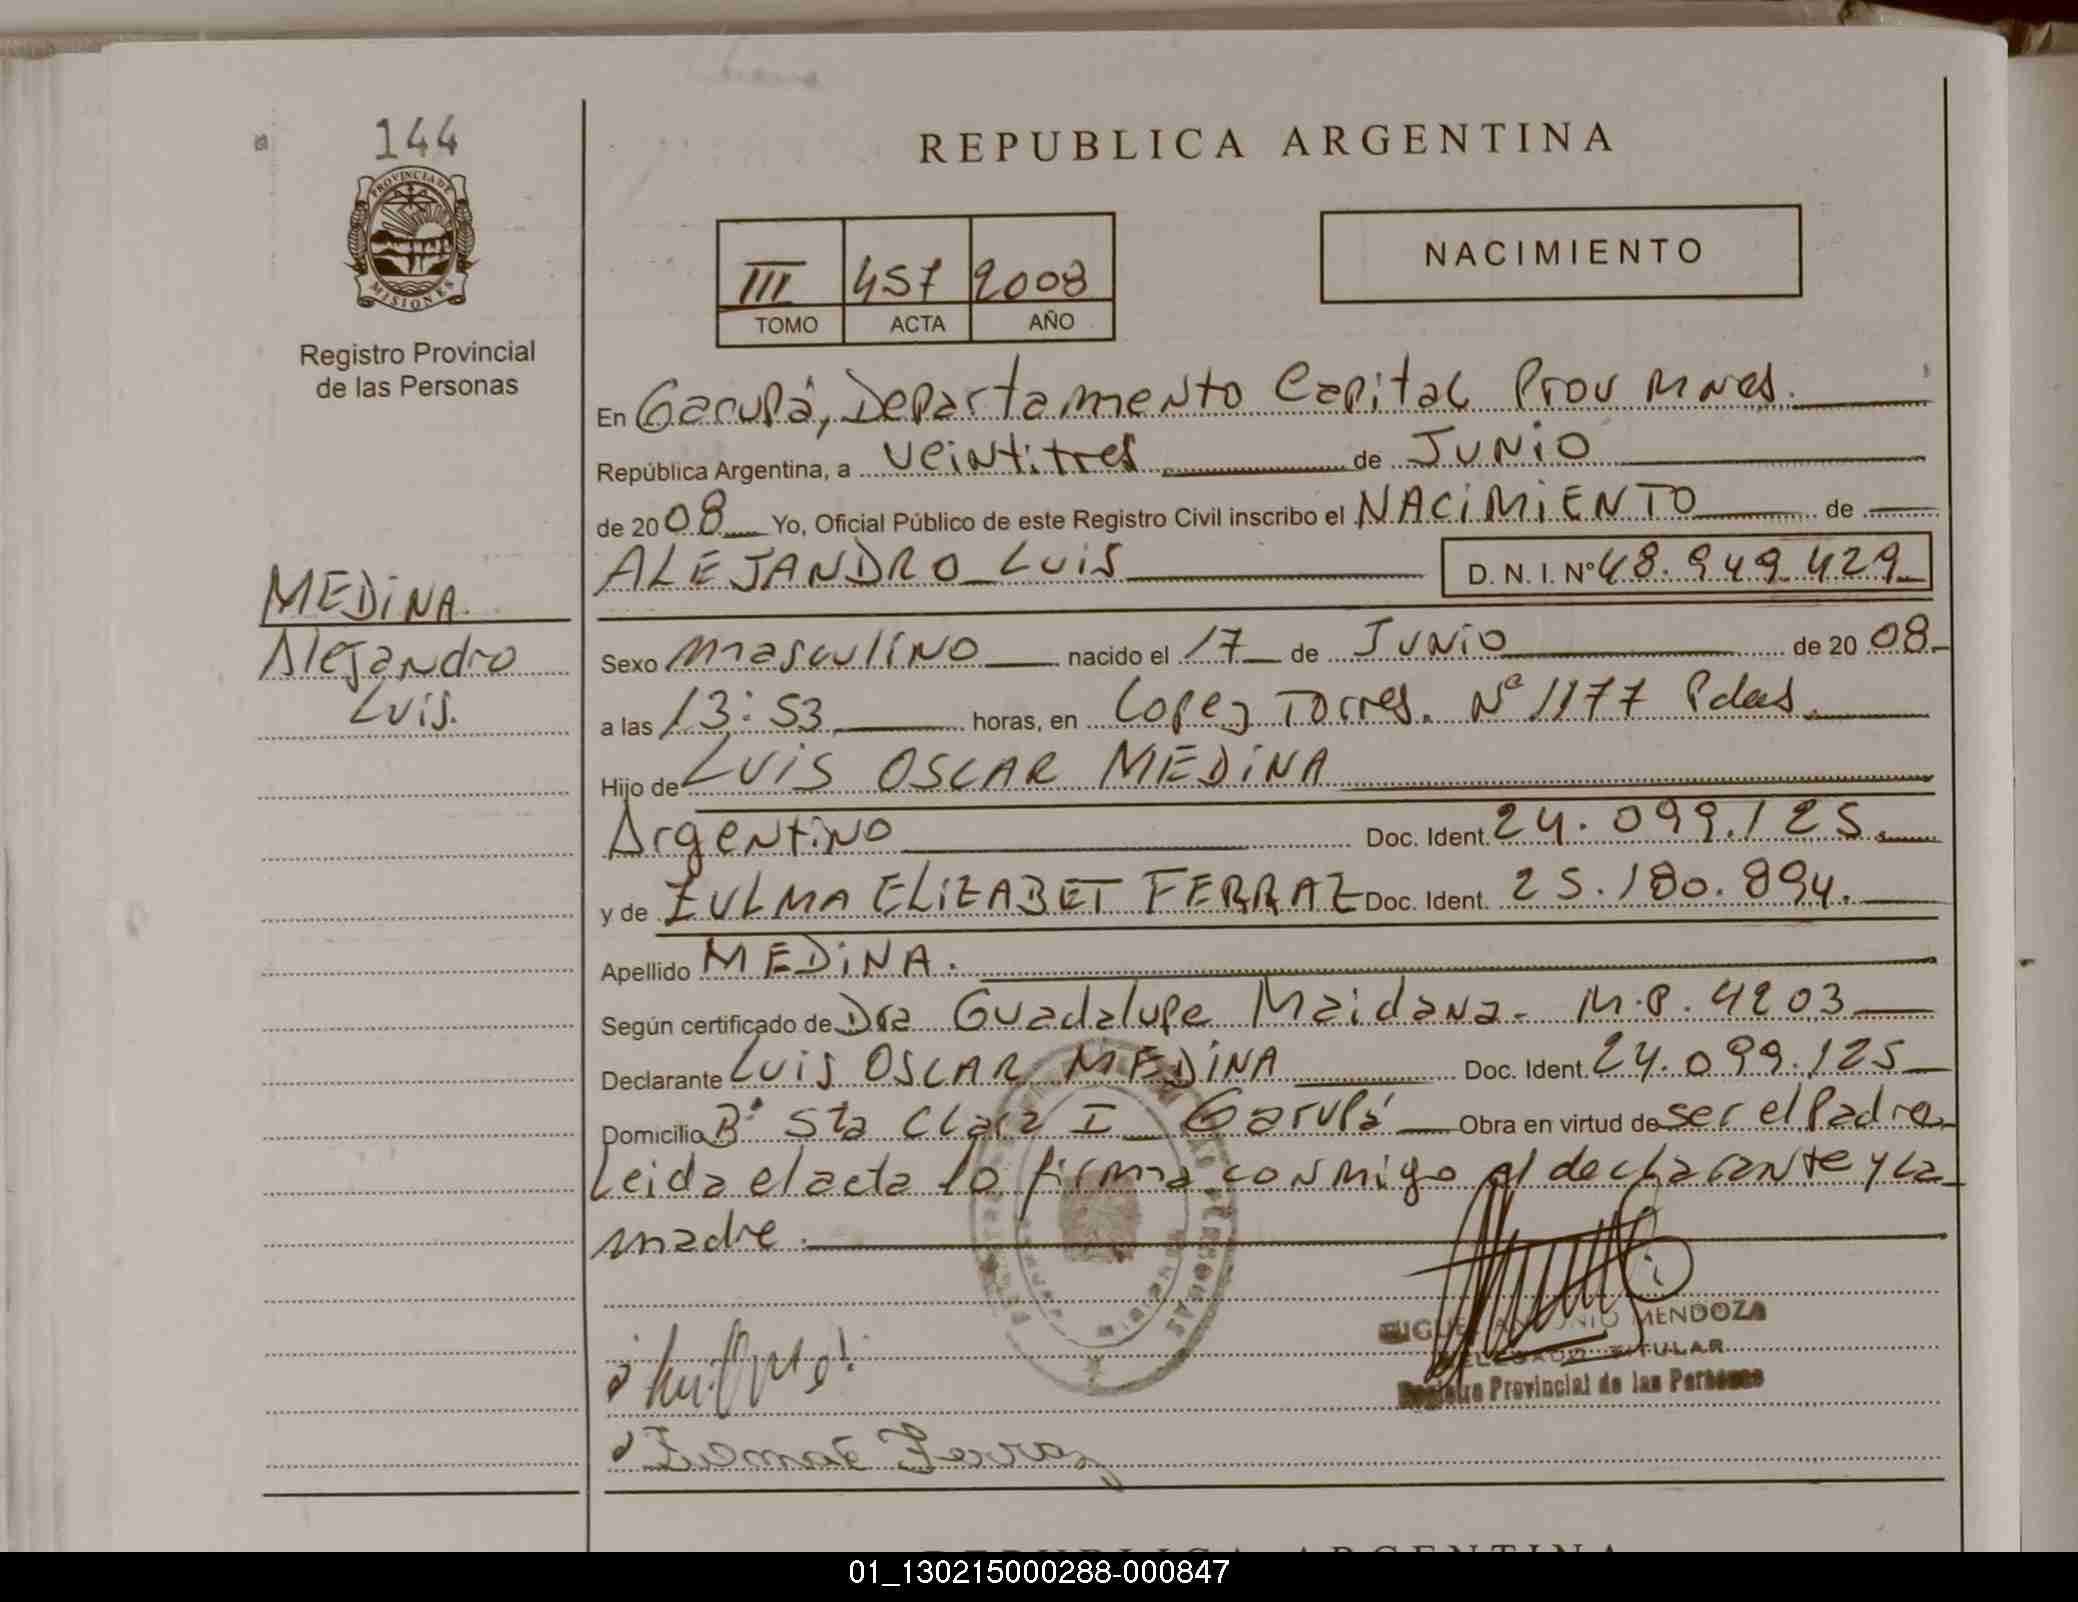 144
PROVINCIA DE
MISIONES
Registro Provincial
de las Personas
MEDINA.
Alejandro
Luis.
REPUBLICA ARGENTINA
III 457 2008
TOMO ACTA AÑO
NACIMIENTO
En Garupá, Departamento Capital Prov Mnes.
República Argentina, a veintitres de Junio
de 2008 Yo, Oficial Público de este Registro Civil inscribo el NACIMIENTO de
ALEJANDRO LUIS D. N. I. Nº 48.949.429
Sexo masculino nacido el 17 de Junio de 2008
a las 13:53 horas, en Lopez Torres. Nº 1177 Pdas.
Hijo de LUIS OSCAR MEDINA
Argentino Doc. Ident. 24.099.125
y de ZULMA ELIZABET FERRAZ Doc. Ident. 25.180.894.
Apellido MEDINA.
Según certificado de Dra Guadalupe Maidana - M.P. 4203
Declarante LUIS OSCAR MEDINA Doc. Ident. 24.099.125
Domicilio Bº Sta Clara I Garupá Obra en virtud de ser el Padre
Leida el acta lo firma conmigo el declarante y la
madre.
MIGUEL ANTONIO MENDOZA
DELEGADO TITULAR
Registro Provincial de las Personas
Ferraz
REPUBLICA ARGENTINA
01_130215000288-000847